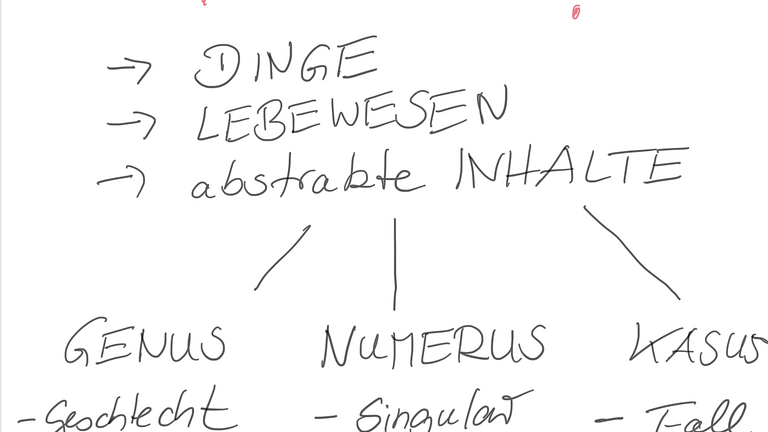 → DINGE
→ LEBEWESEN
→ abstrakte INHALTE
GENUS NUMERUS KASUS
- Geschlecht - Singular - Fall